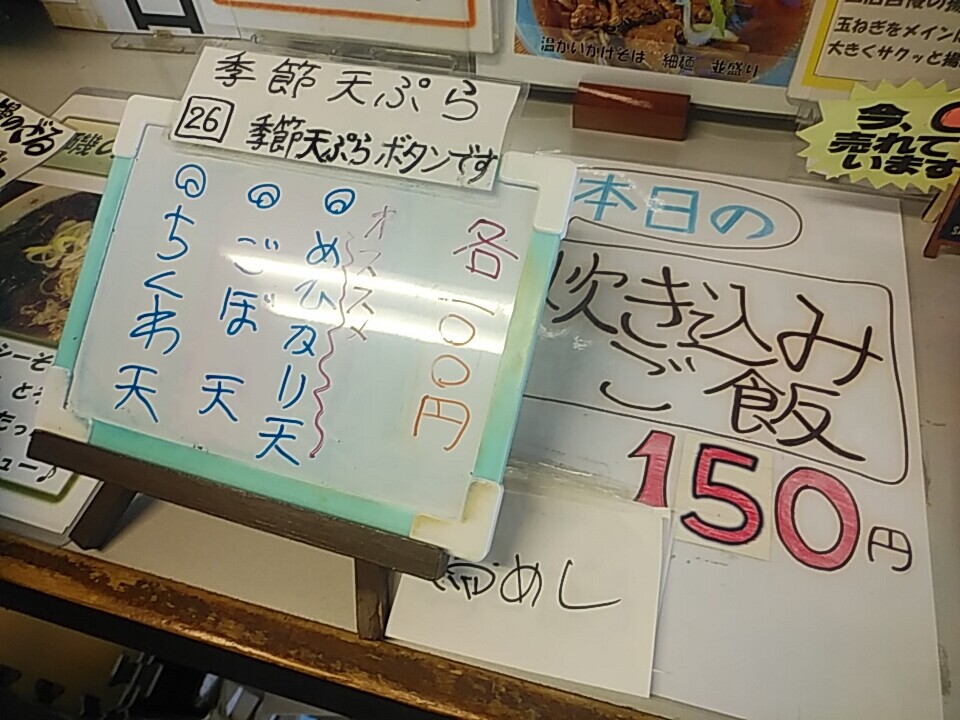 季節天ぷら
26 季節天ぷらボタンです
各一〇〇円
オススメ
めひかり天
ごぼ天
ちくわ天
本日の
炊き込み
ご飯
150円
めし
温かいかけそば 細麺 並盛り
玉ねぎをメインに
大きくサクッと揚
今、
売れて
います